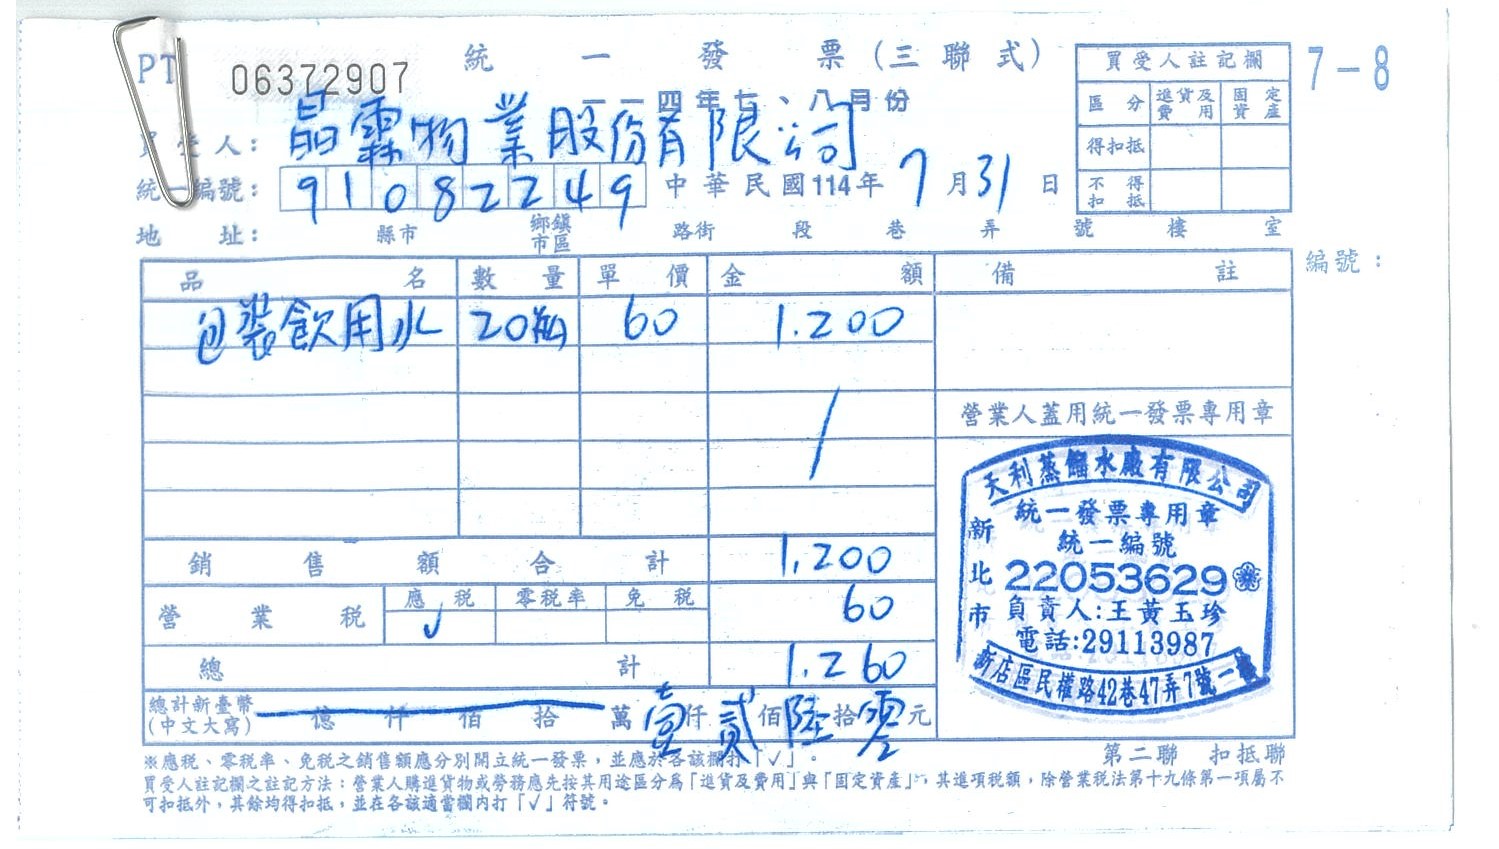 統一發票(三聯式)
PT 06372907
一一四年七、八月份
7-8
買受人: 晶霖物業股份有限公司
統一編號: 91082249 中華民國114年7月31日
地址: 縣市 鄉鎮市區 路街 段 巷 弄 號 樓 室
買受人註記欄
區分 進貨及費用 固定資產
得扣抵
不得扣抵
編號:
品名 數量 單價 金額 備註
包裝飲用水 20瓶 60 1.200
營業人蓋用統一發票專用章
天利蒸餾水廠有限公司
統一發票專用章
統一編號
新北市
22053629
負責人:王黃玉珍
電話:29113987
新店區民權路42巷47弄7號一樓
銷售額合計 1,200
營業稅 應稅 ✓ 零稅率 免稅 60
總計 1.260
總計新臺幣(中文大寫) 億 仟 佰 拾 萬 壹仟 貳佰 陸拾 零元
※應稅、零稅率、免稅之銷售額應分別開立統一發票,並應於各該欄打「✓」。
第二聯 扣抵聯
買受人註記欄之註記方法:營業人購進貨物或勞務應先按其用途區分為「進貨及費用」與「固定資產」,其進項稅額,除營業稅法第十九條第一項屬不
可扣抵外,其餘均得扣抵,並在各該適當欄內打「✓」符號。